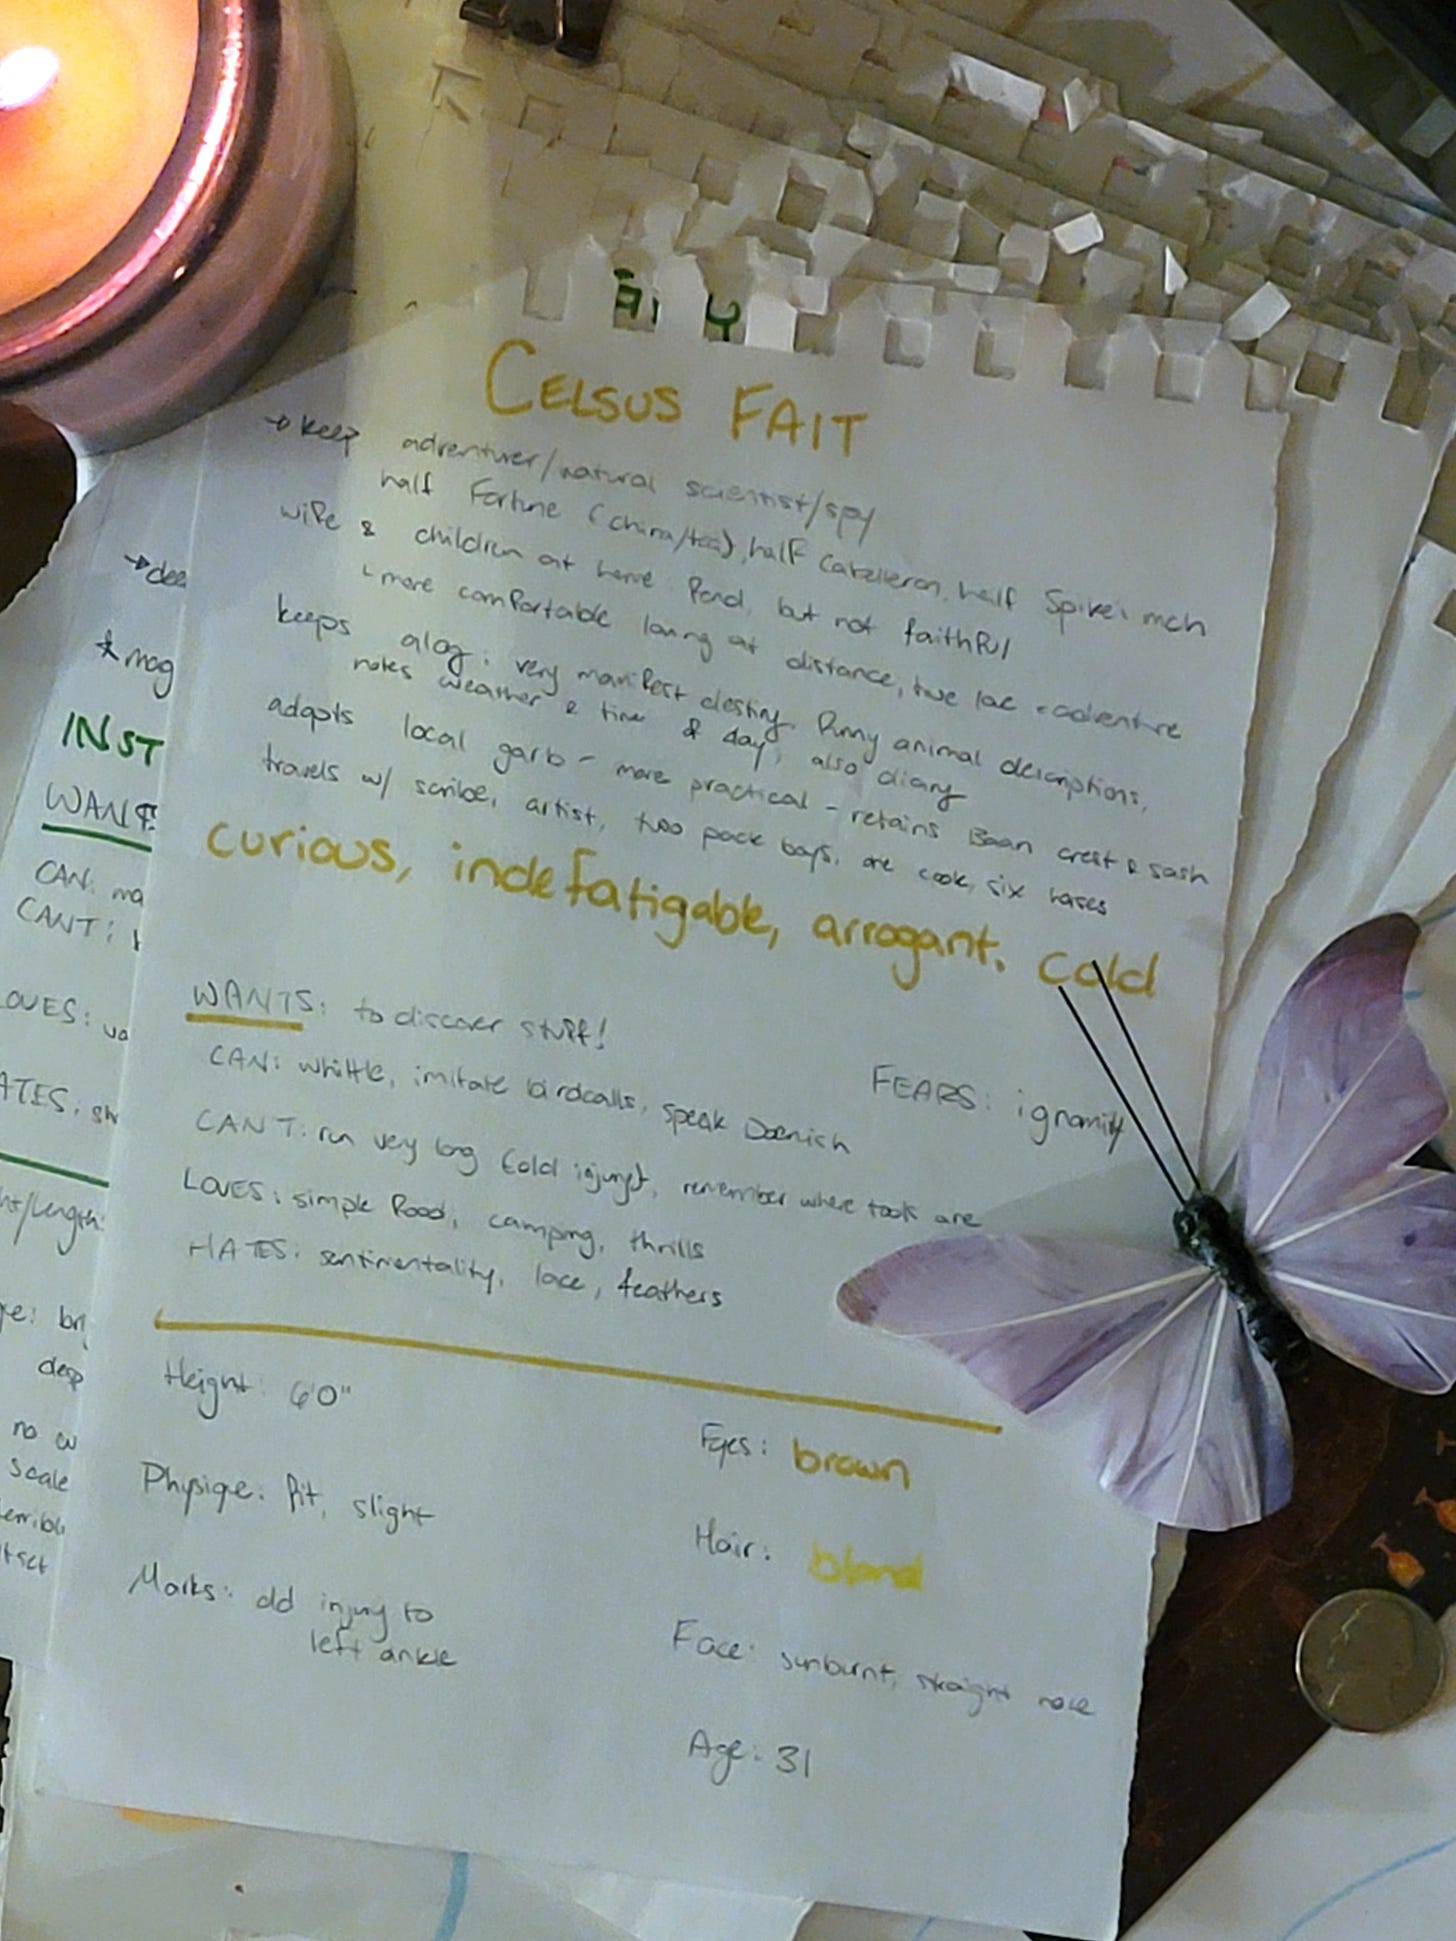 CELSUS FAIT
→ keep
adventurer/natural scientist/spy
half Fortune (China/tea), half Caballeron, half Spike:
wife & children at home. Fond, but not faithful
more comfortable loving at distance, adventure
keeps a log: very manifest destiny. Funny animal descriptions,
notes weather & time of day, also diary
adopts local garb - more practical - retains Baan crest & sash
travels w/ scribe, artist, two pack boys, one cook, six horses
curious, indefatigable, arrogant, cold
WANTS: to discover stuff!
CAN: whittle, imitate birdcalls, speak Doenish
FEARS: ignomity
CANT: run very long (old injury), remember where tools are
LOVES: simple food, camping, thrills
HATES: sentimentality, lace, feathers
Height: 6'0"
Eyes: brown
Physiqe: fit, slight
Hair: blond
Marks: old injury to
left ankle
Face: sunburnt, straight nose
Age: 31
→ dee
* mag
INST
WANTS
CAN: ma
CANT:
LOVES: va
HATES: sh
/length:
no
scale